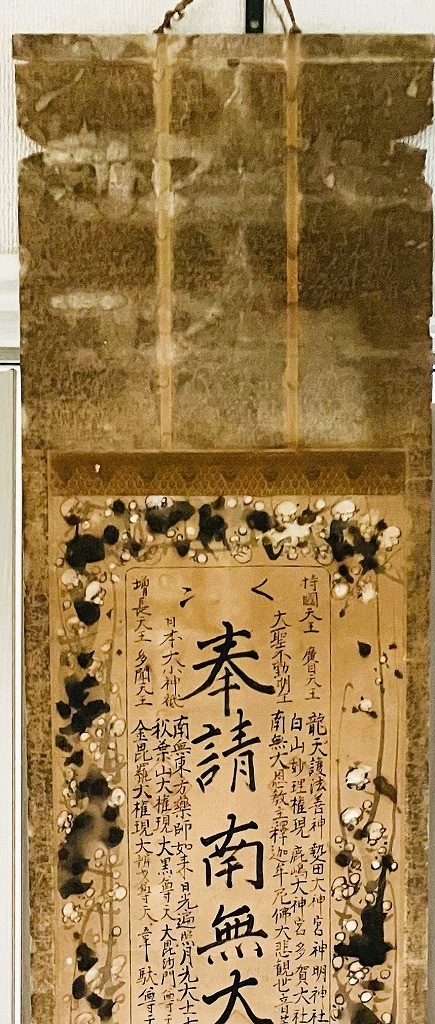 持國天王 廣目天王
大聖不動明王
龍天護法善神 熱田大神宮 神明神社
白山妙理権現 鹿嶋大神宮 多賀大社
南無大恩教主釋迦牟尼佛 大悲観世音
く
奉請 南無大
日本大小神祇
南無東方藥師如来 日光遍照月光大士
秋葉山大権現 大黒尊天 大毘沙門尊天
金毘羅大権現 大辨財尊天 韋駄尊天
増長天王 多聞天王